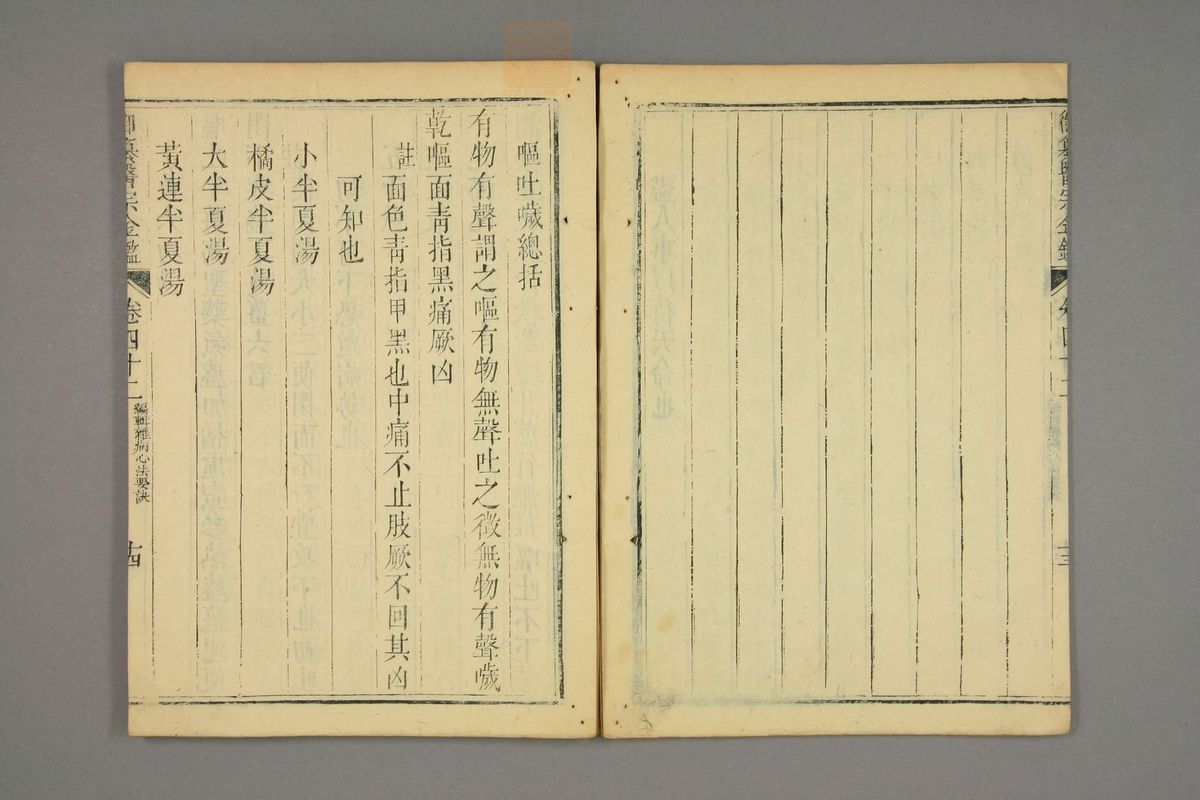 御纂醫宗金鑑
卷四十二
十三
嘔吐噦總括
有物有聲謂之嘔有物無聲吐之徵無物有聲噦
乾嘔面靑指黑痛厥凶
註面色靑指甲黑也中痛不止肢厥不回其凶
可知也
小半夏湯
橘皮半夏湯
大半夏湯
黃連半夏湯
御纂醫宗金鑑
卷四十二
編輯雜病心法要訣
十四